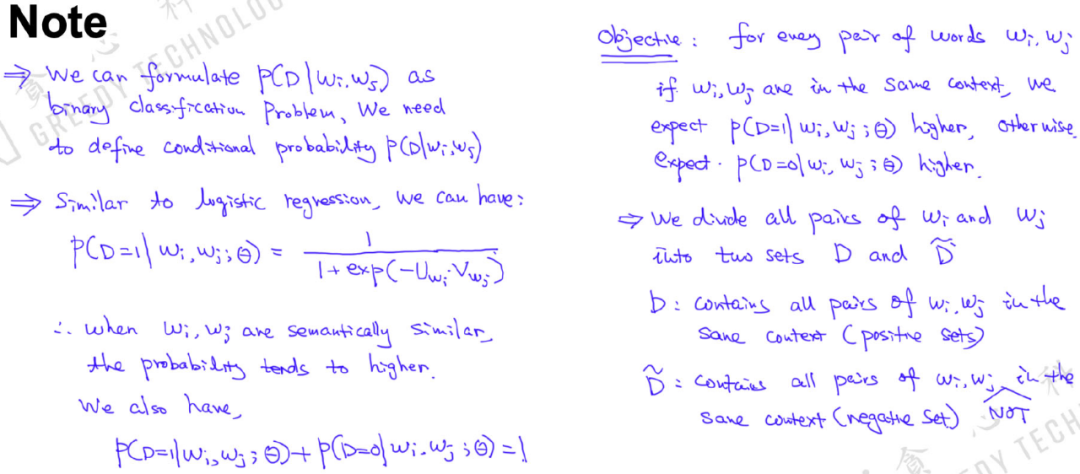 Note
⇒ We can formulate P(D|wi,wj) as
binary classification Problem, We need
to define conditional probability P(D|wi,wj)
⇒ Similar to logistic regression, we can have:
P(D=1|wi,wj;θ) = 1 / (1+exp(-Uwi·Vwj))
∴ when wi, wj are semantically similar,
the probability tends to higher.
We also have,
P(D=1|wi,wj;θ)+P(D=0|wi,wj;θ)=1
Objective: for every pair of words wi, wj
if wi,wj are in the same context, we
expect P(D=1|wi,wj;θ) higher, otherwise
expect. P(D=0|wi,wj;θ) higher.
⇒ We divide all pairs of wi and wj
into two sets D and D̃
D: contains all pairs of wi,wj in the
same context (positive sets)
D̃: contains all pairs of wi,wj in the
NOT
same context (negative set)
GREEDY TECHNOLO
DY TECH